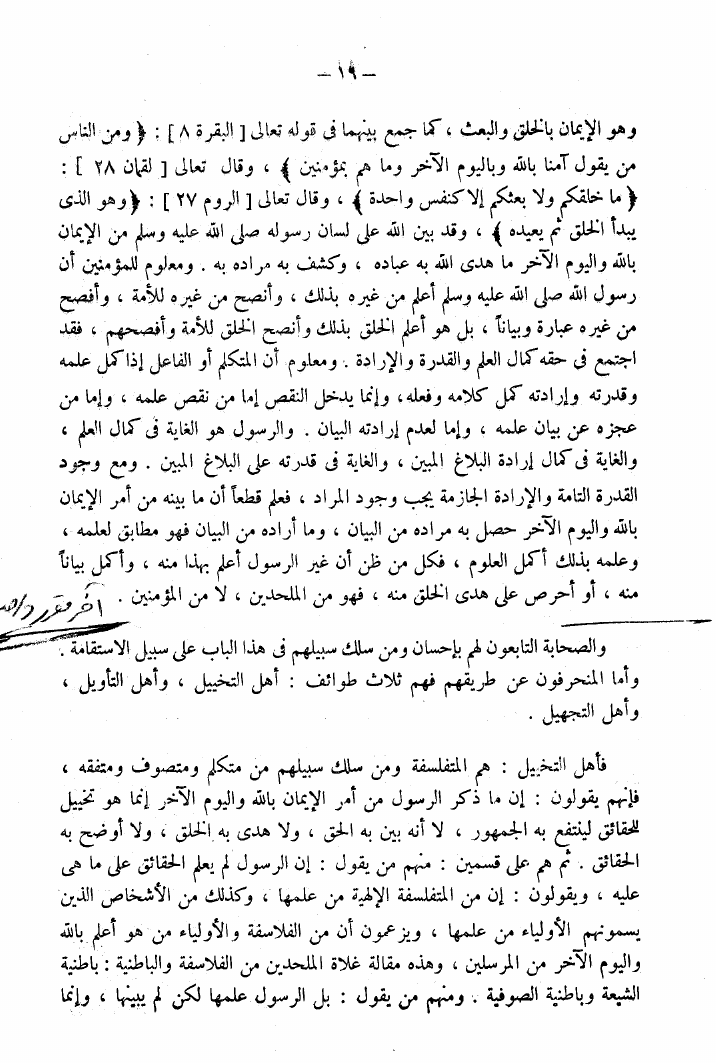 — ١٩ —
وهو الإيمان بالخلق والبعث ، كما جمع بينهما فى قوله تعالى [ البقرة ٨ ] : ﴿ ومن الناس
من يقول آمنا بالله وباليوم الآخر وما هم بمؤمنين ﴾ ، وقال تعالى [ لقمان ٢٨ ] :
﴿ ما خلقكم ولا بعثكم إلا كنفس واحدة ﴾ ، وقال تعالى [ الروم ٢٧ ] : ﴿ وهو الذى
يبدأ الخلق ثم يعيده ﴾ ، وقد بين الله على لسان رسوله صلى الله عليه وسلم من الإيمان
بالله واليوم الآخر ما هدى الله به عباده ، وكشف به مراده به . ومعلوم للمؤمنين أن
رسول الله صلى الله عليه وسلم أعلم من غيره بذلك ، وأنصح من غيره للأمة ، وأفصح
من غيره عبارة وبياناً ، بل هو أعلم الخلق بذلك وأنصح الخلق للأمة وأفصحهم ، فقد
اجتمع فى حقه كمال العلم والقدرة والإرادة . ومعلوم أن المتكلم أو الفاعل إذا كمل علمه
وقدرته وإرادته كمل كلامه وفعله، وإنما يدخل النقص إما من نقص علمه ، وإما من
عجزه عن بيان علمه ، وإما لعدم إرادته البيان . والرسول هو الغاية فى كمال العلم ،
والغاية فى كمال إرادة البلاغ المبين ، والغاية فى قدرته على البلاغ المبين . ومع وجود
القدرة التامة والإرادة الجازمة يجب وجود المراد ، فعلم قطعاً أن ما بينه من أمر الإيمان
بالله واليوم الآخر حصل به مراده من البيان ، وما أراده من البيان فهو مطابق لعلمه ،
وعلمه بذلك أكمل العلوم ، فكل من ظن أن غير الرسول أعلم بهذا منه ، وأكمل بياناً
منه ، أو أحرص على هدى الخلق منه ، فهو من الملحدين ، لا من المؤمنين . آخر مقرر
والصحابة التابعون لهم بإحسان ومن سلك سبيلهم فى هذا الباب على سبيل الاستقامة .
وأما المنحرفون عن طريقهم فهم ثلاث طوائف : أهل التخييل ، وأهل التأويل ،
وأهل التجهيل .
فأهل التخييل : هم المتفلسفة ومن سلك سبيلهم من متكلم ومتصوف ومتفقه ،
فإنهم يقولون : إن ما ذكر الرسول من أمر الإيمان بالله واليوم الآخر إنما هو تخييل
للحقائق لينتفع به الجمهور ، لا أنه بين به الحق ، ولا هدى به الخلق ، ولا أوضح به
الحقائق . ثم هم على قسمين : منهم من يقول : إن الرسول لم يعلم الحقائق على ما هى
عليه ، ويقولون : إن من المتفلسفة الإلهية من علمها ، وكذلك من الأشخاص الذين
يسمونهم الأولياء من علمها ، ويزعمون أن من الفلاسفة والأولياء من هو أعلم بالله
واليوم الآخر من المرسلين ، وهذه مقالة غلاة الملحدين من الفلاسفة والباطنية : باطنية
الشيعة وباطنية الصوفية . ومنهم من يقول : بل الرسول علمها لكن لم يبينها ، وإنما